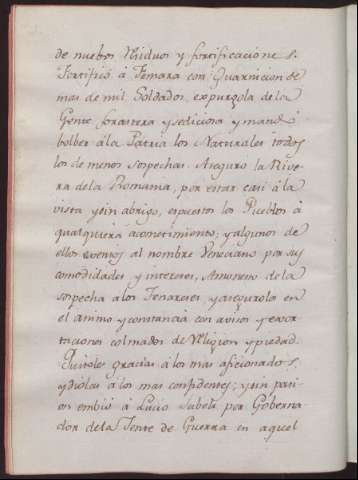 de nuebos Niduos y fortificaciones.
Fortificó â Femara con Guarnicion de
mas de mil Soldados, expurgola de la
Gente forastera y sediciosa y mandó
bolber âla Patria los Naturales todos
los de menos sospechas. Aseguro la Rive-
ra dela Romania, por estar casi â la
vista y sin abrigo, expuestos los Pueblos â
qualquiera acontecimiento; y algunos de
ellos afectos al nombre Veneciano por sus
comodidades y intereses, Amonesto de la
sospecha a los Fenareses y aseguròlos en
el animo y constancia con avisos y exor-
taciones colmados de Religion y piedad.
Quitoles gracias â los mas aficionados,
y diolas â los mas confidentes; y sin pasi-
on embió â Lucio Sabeli por Goberna-
dor dela Jente de Guerra en aquel